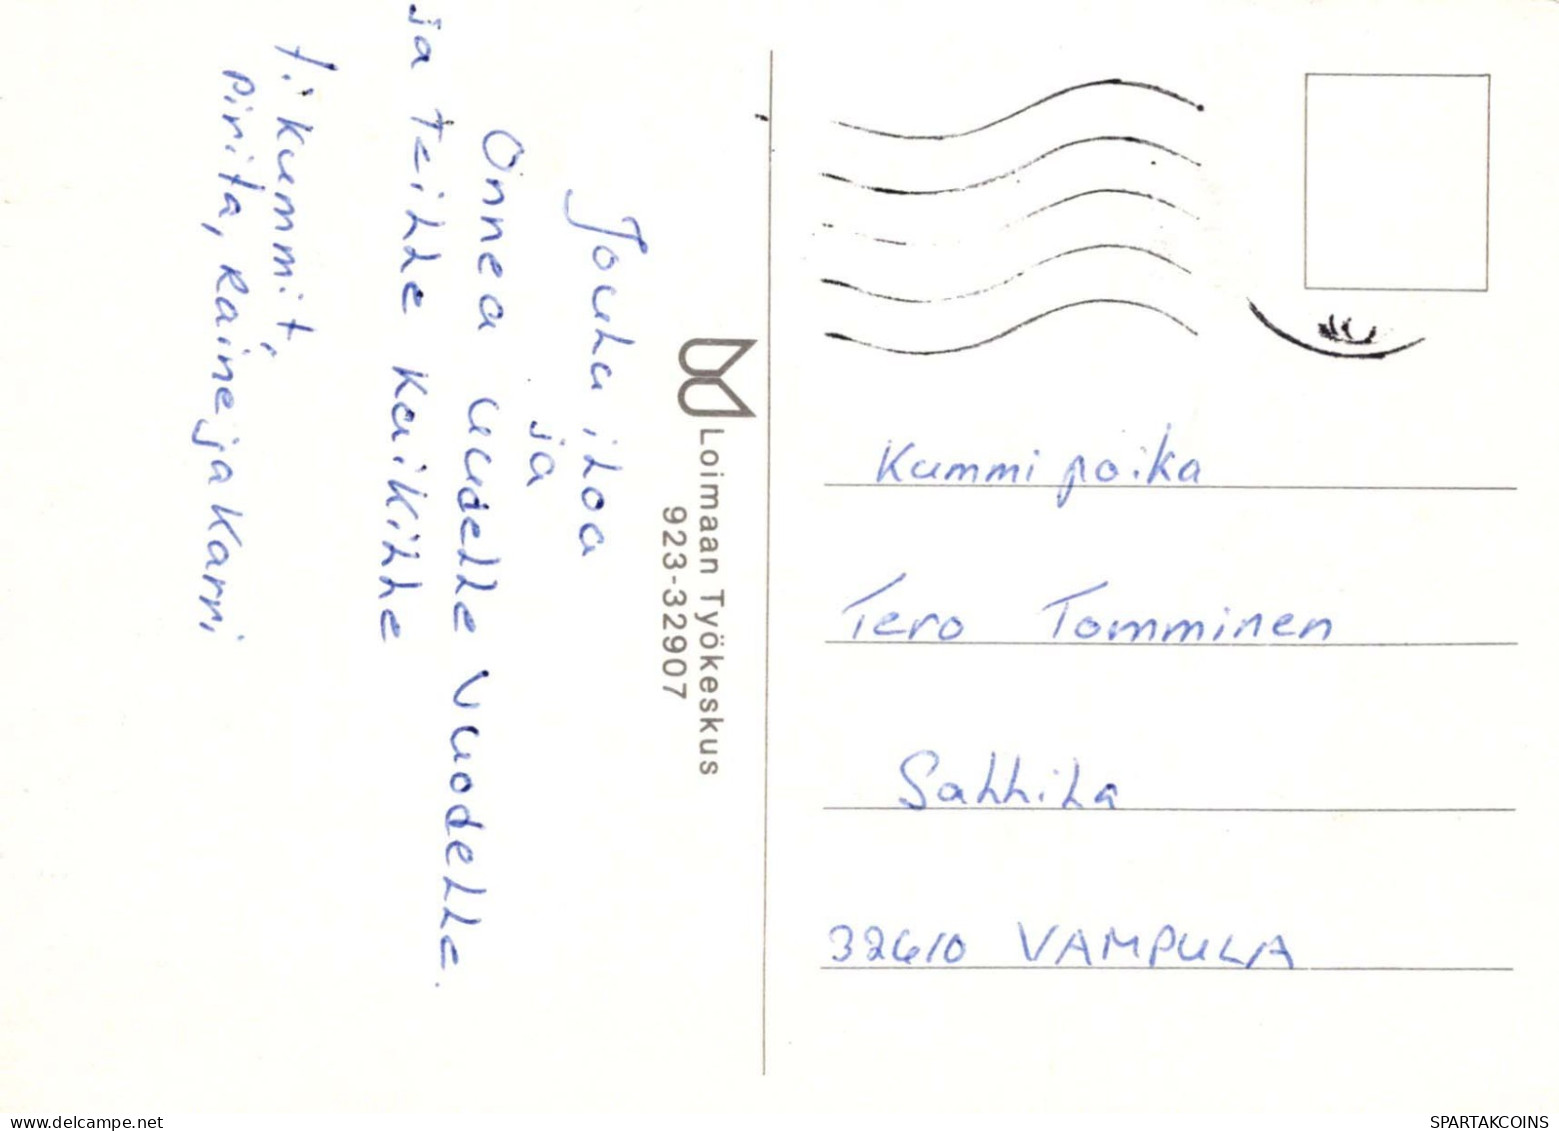 Jouluiloa
ja
Onnea uudelle vuodelle.
ja teille kaikille
t: kummit,
Pirita, Raine ja Karri
Loimaan Työkeskus
923-32907
Kummipoika
Tero Tomminen
Sallila
32610 VAMPULA
www.delcampe.net
SPARTAKCOINS